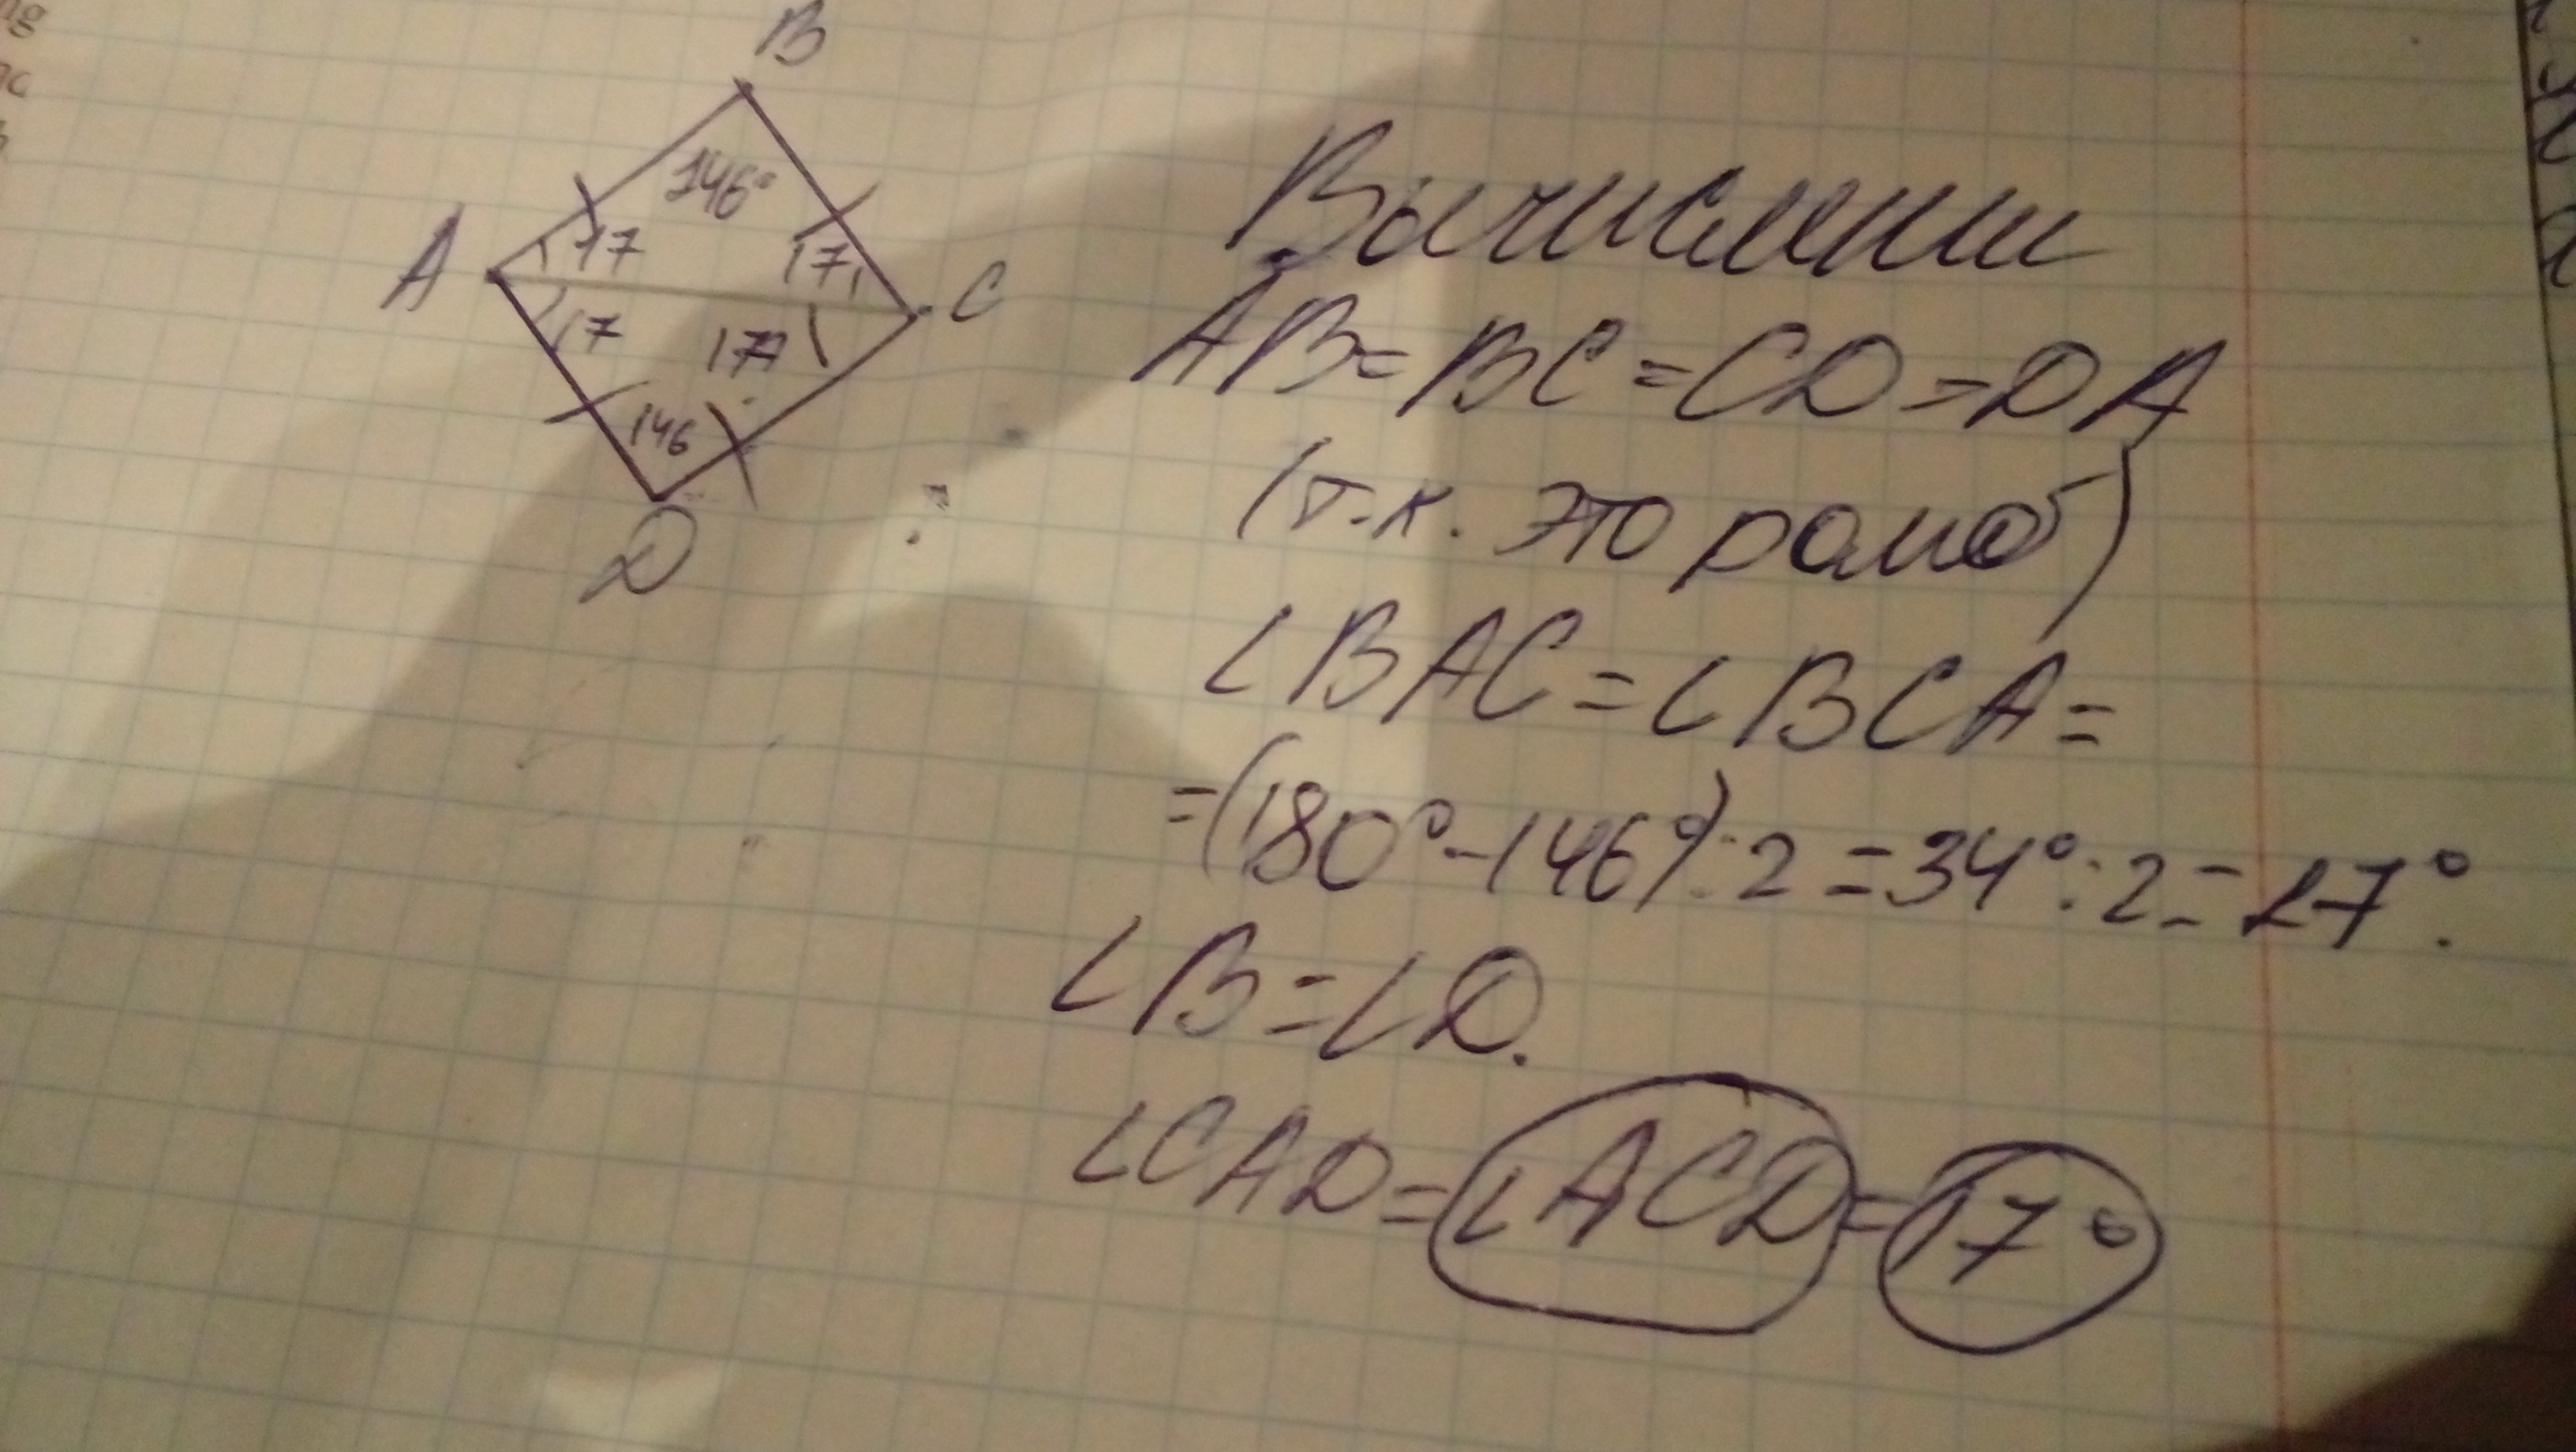 B
146°
A
17
17
C
17
17
146
D
Вычислили
AB=BC=CD=DA
(т.к. это ромб)
∠BAC=∠BCA=
=(180°-146°):2=34°:2=17°.
∠B=∠D.
∠CAD=∠ACD=17°